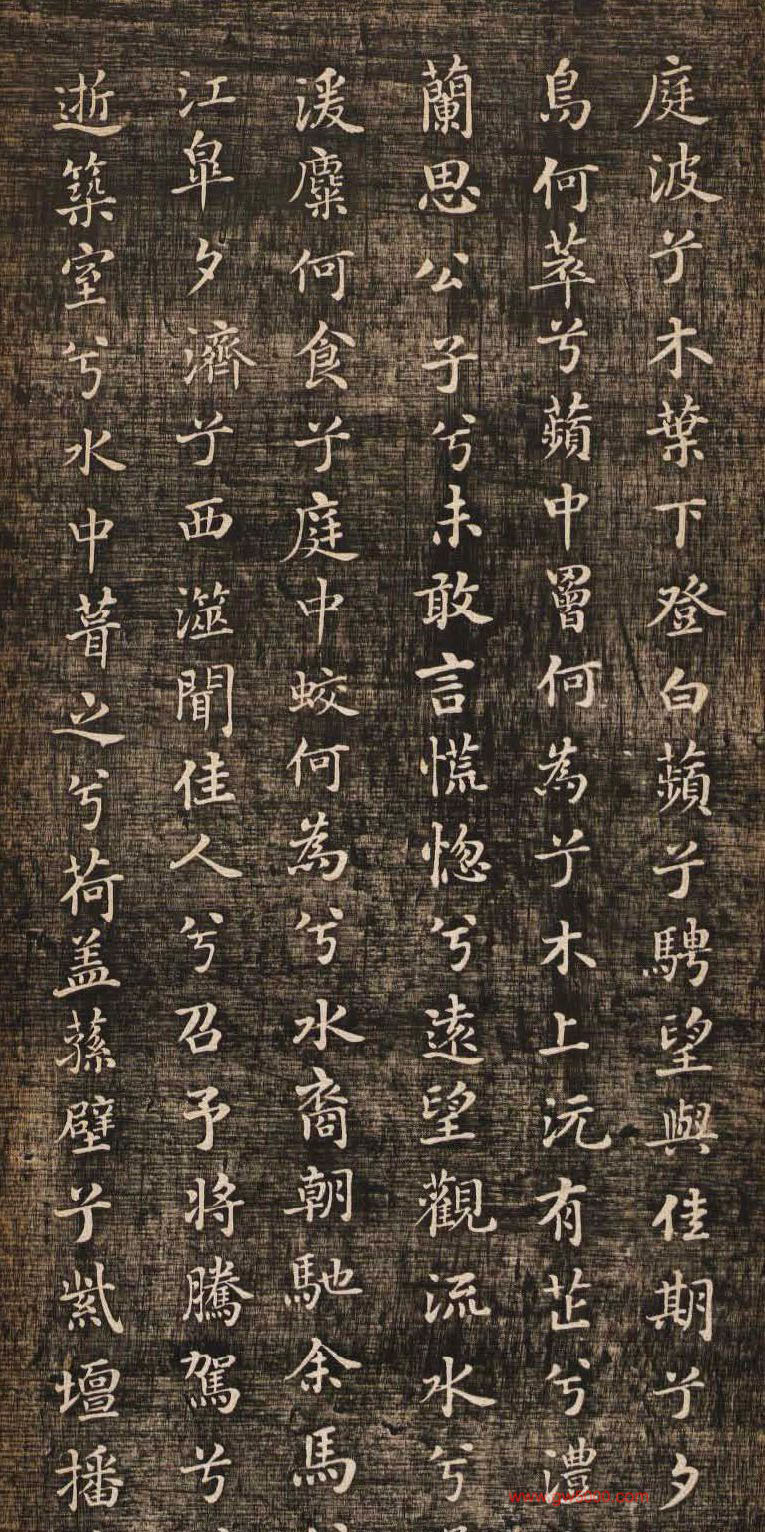 庭波兮木葉下登白蘋兮騁望與佳期兮夕
鳥何萃兮蘋中罾何為兮木上沅有芷兮澧
蘭思公子兮未敢言慌惚兮遠望觀流水兮
湲麋何食兮庭中蛟何為兮水裔朝馳余馬
江皐夕濟兮西澨聞佳人兮召予将騰駕兮
逝築室兮水中葺之兮荷盖蓀壁兮紫壇播